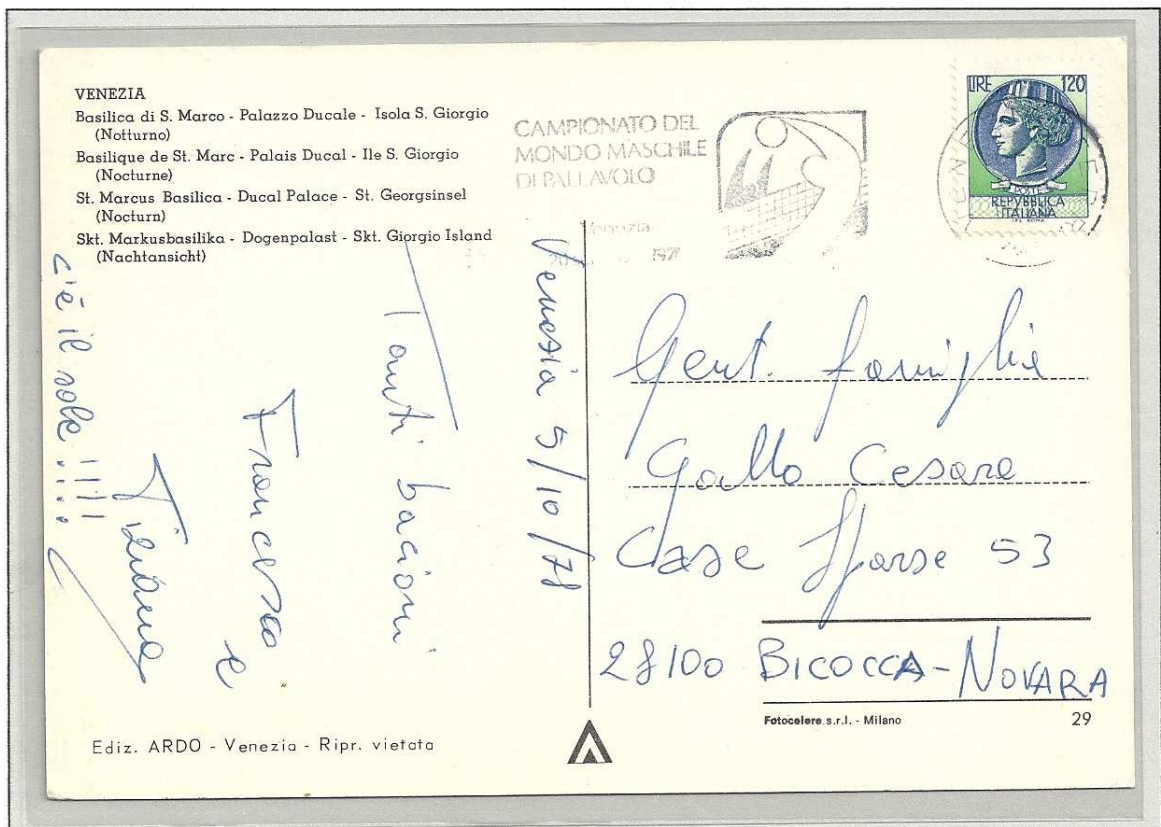 VENEZIA
Basilica di S. Marco - Palazzo Ducale - Isola S. Giorgio
(Notturno)
Basilique de St. Marc - Palais Ducal - Ile S. Giorgio
(Nocturne)
St. Marcus Basilica - Ducal Palace - St. Georgsinsel
(Nocturn)
Skt. Markusbasilika - Dogenpalast - Skt. Giorgio Island
(Nachtansicht)
CAMPIONATO DEL
MONDO MASCHILE
DI PALLAVOLO
Venezia
20 197
LIRE 120
POSTE
REPVBBLICA
ITALIANA
Venezia 5/10/78
Tanti bacioni
Francesco
e
Tiziana
c'è il sole !!!!
Gent. famiglia
Gallo Cesare
Case Sparse 53
28100 BICOCCA - NOVARA
Fotocelere s.r.l. - Milano
29
Ediz. ARDO - Venezia - Ripr. vietata